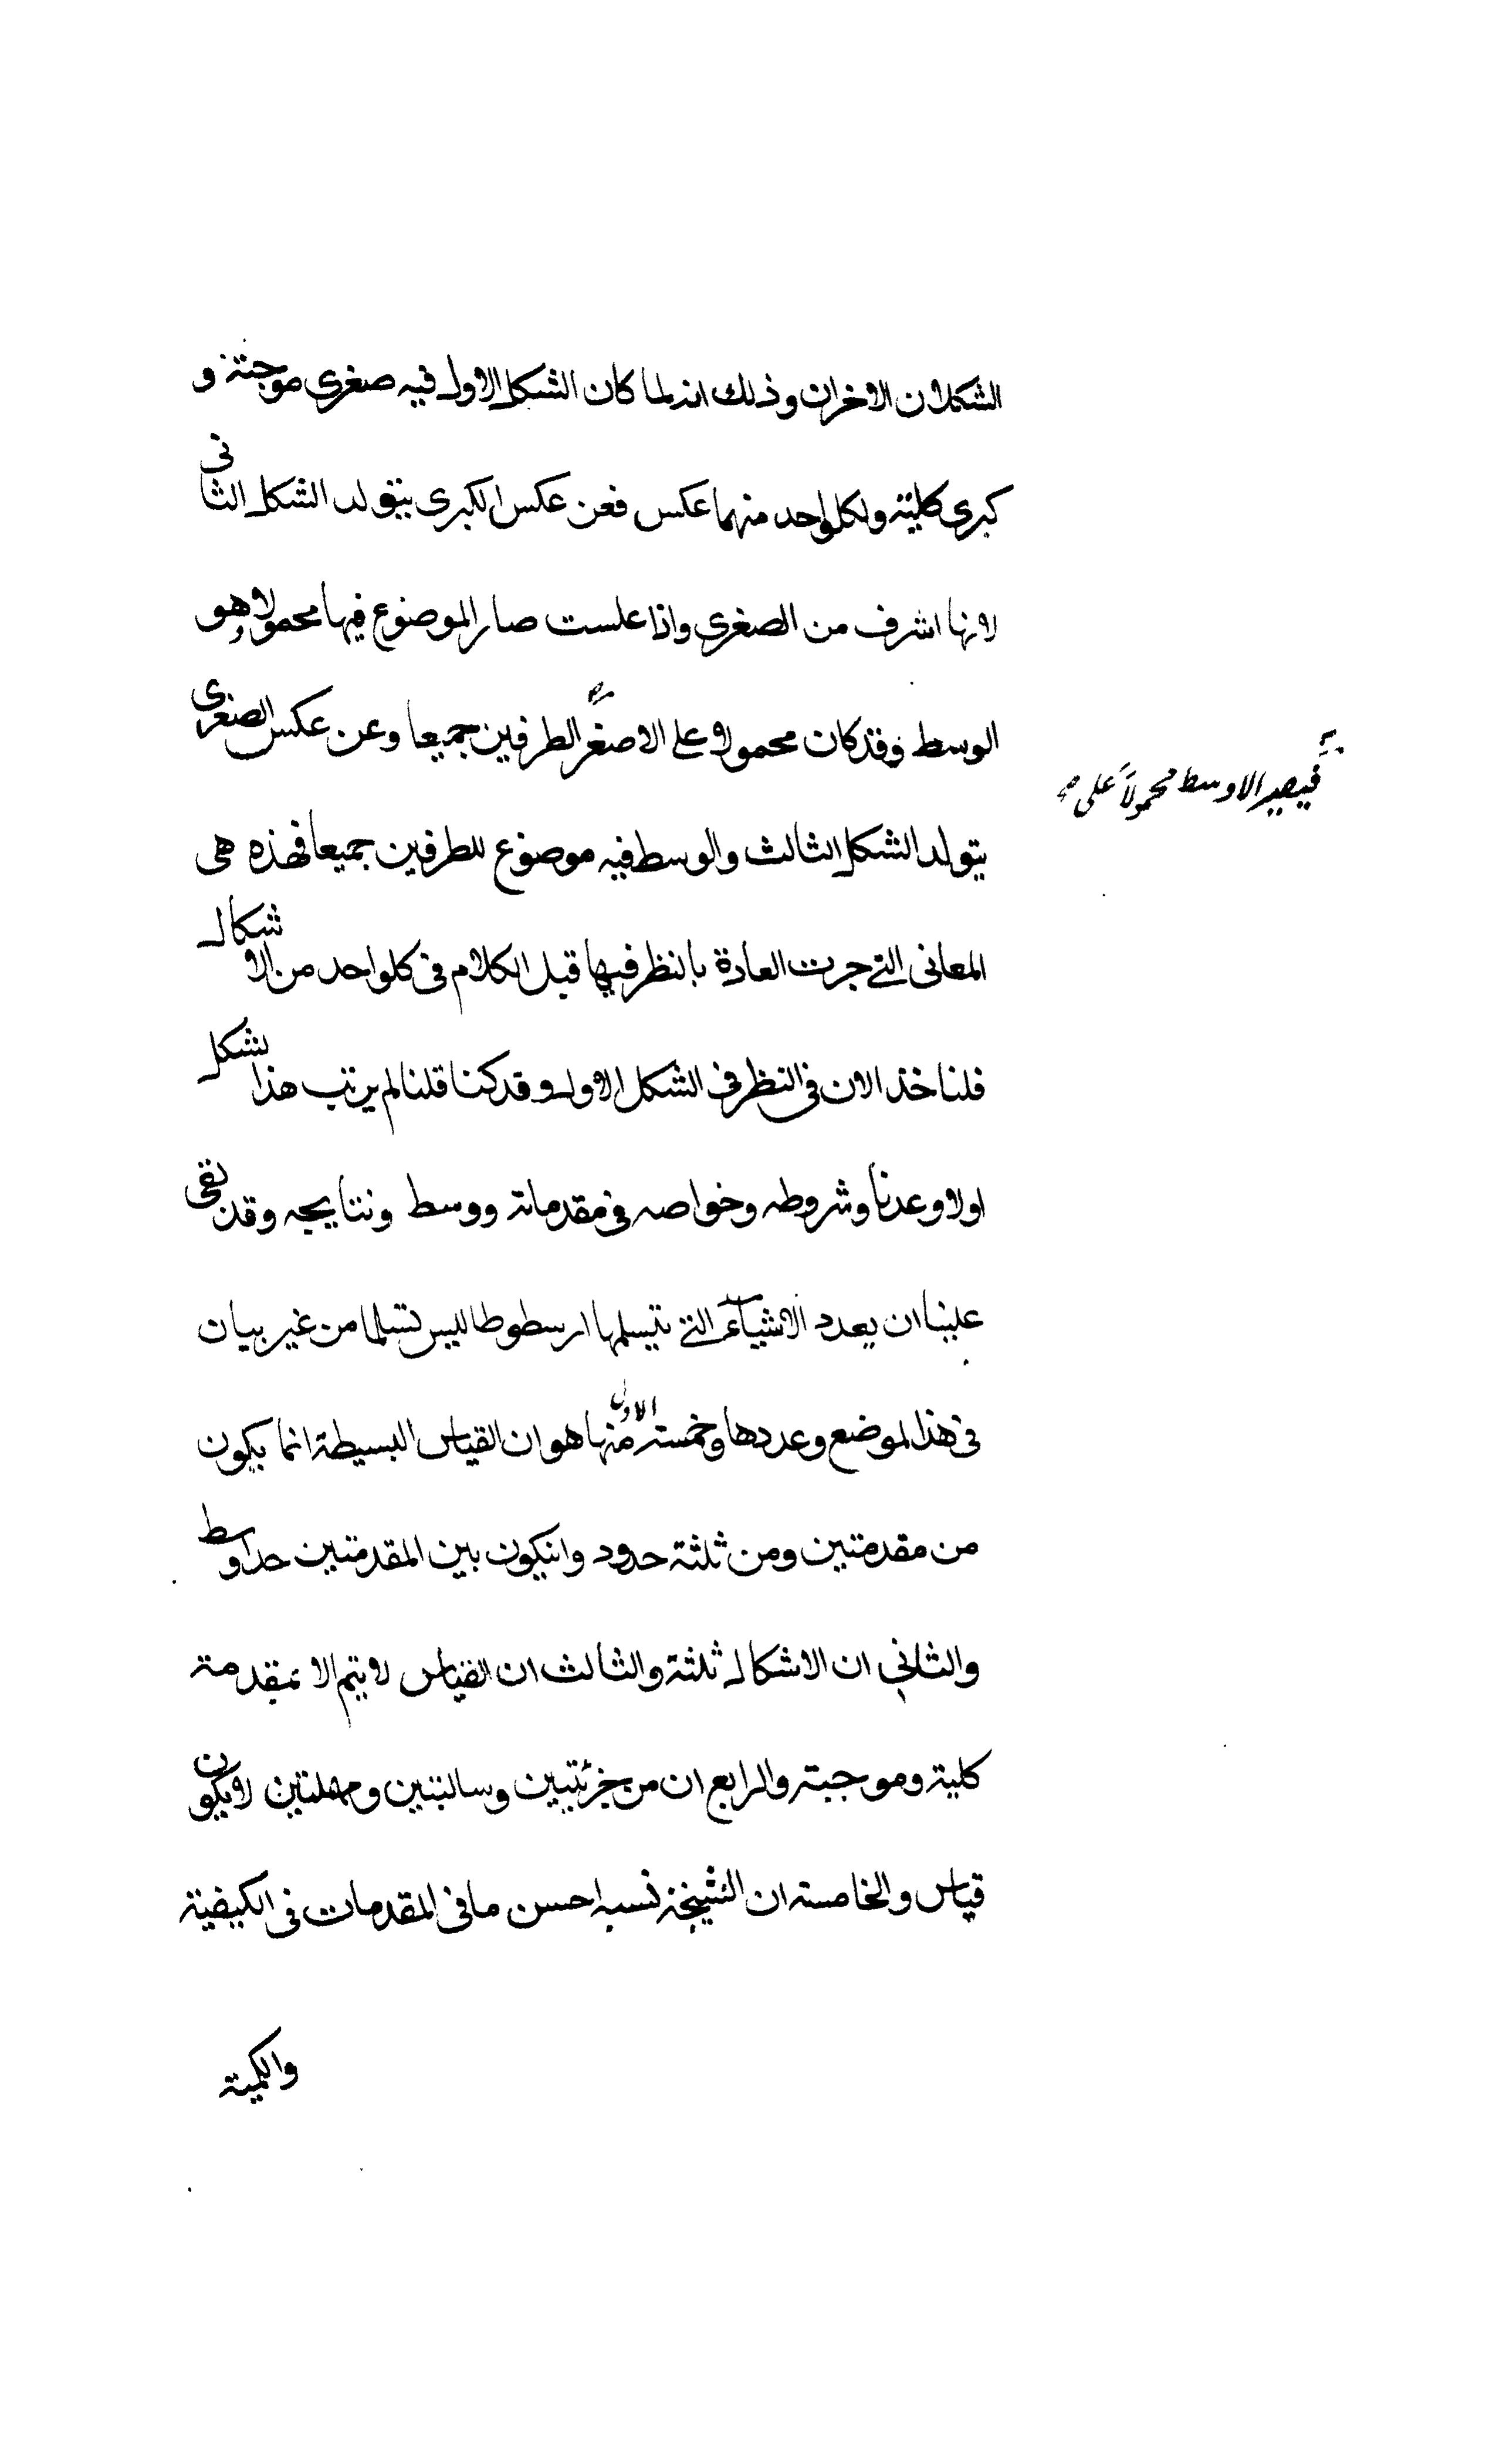 الشكلان الاخران وذلك انه لما كان الشكل الاول فيه صغرى موجبة و
كبرى كلية ولكل واحد منهما عكس فعن عكس الكبرى يتولد الشكل الثانى
لانها اشرف من الصغرى واذا عكست صار الموضوع فيها محمولا وهو
الوسط وقد كان محمولا على الاصغر الطرفين جميعا وعن عكس الصغرى
فيصير الاوسط محمولاً على
يتولد الشكل الثالث والوسط فيه موضوع للطرفين جميعا فهذه هى
المعانى التى جرت العادة بالنظر فيها قبل الكلام فى كلواحد من الاشكال
فلناخذ الان فى النظر فى الشكل الاول وقد كنا قلنا لم يرتب هذا شكل
اولا وعدنا وشروطه وخواصه فى مقدماته ووسط ونتايجه وقد بقى
علينا ان يعدد الاشياء التى يتسلمها ارسطوطاليس تسلما من غير بيان
فى هذا الموضع وعددها وخمسة الاول منها هو ان القياس البسيطة انما يكون
من مقدمتين ومن ثلثة حدود وانيكون بين المقدمتين حد اوسط
والثانى ان الاشكال ثلثة والثالث ان القياس لا يتم الا بمقدمة
كلية وموجبة والرابع ان من جزئيتين وسالبتين ومهملتين لا يكون
قياس والخامسة ان النتيجة نسبه احسن ما فى المقدمات فى الكيفية
والكمية